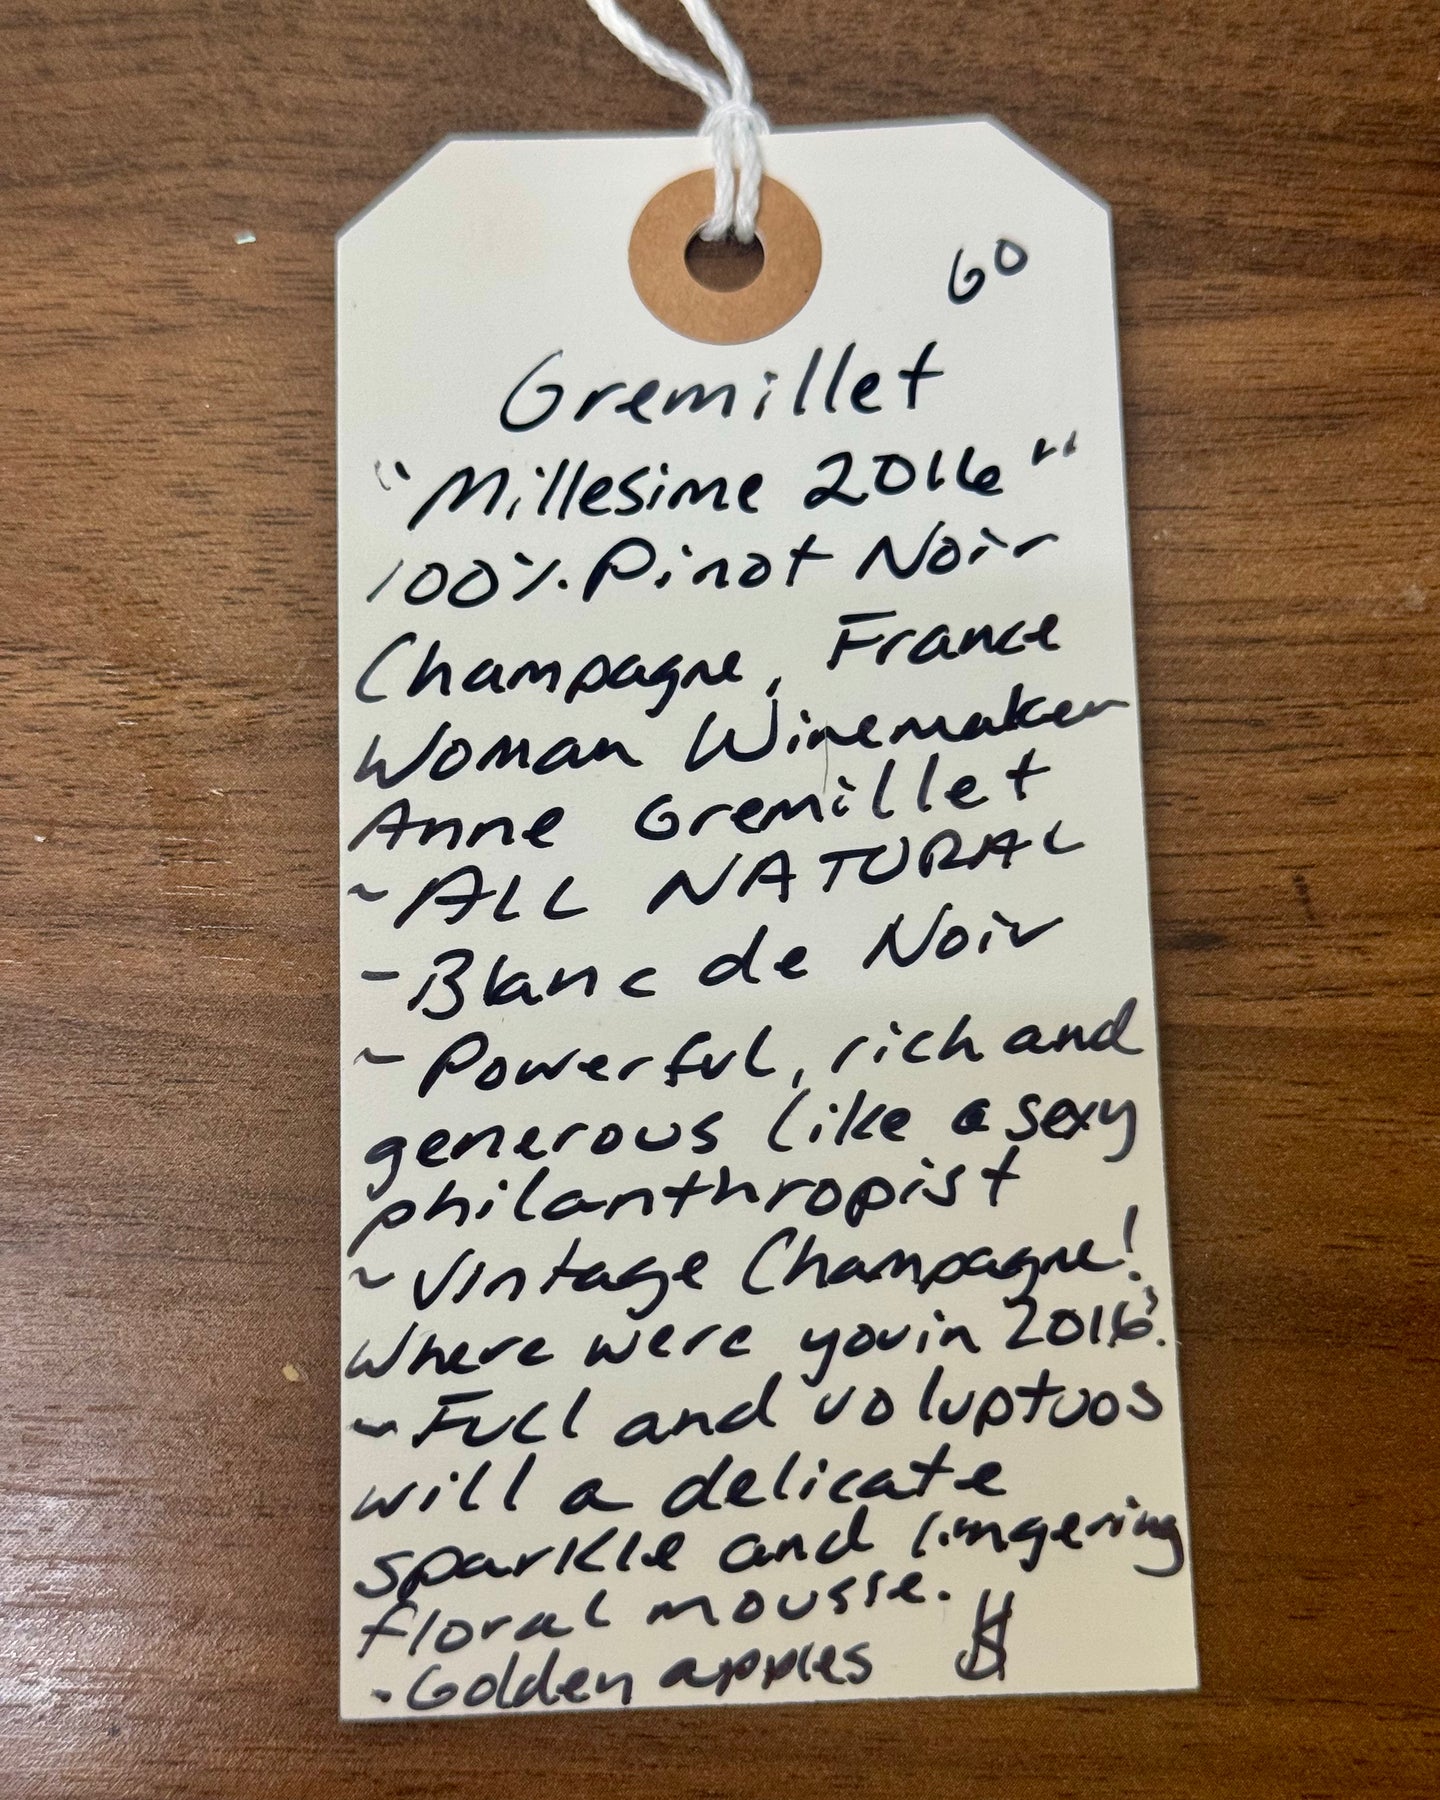 60
Gremillet
"Millesime 2016"
100% Pinot Noir
Champagne, France
Woman Winemaker
Anne Gremillet
~ ALL NATURAL
- Blanc de Noir
~ Powerful, rich and
generous like a sexy
philanthropist
~ Vintage Champagne!
Where were you in 2016?
~ Full and voluptuos
will a delicate
sparkle and lingering
floral mousse.
- Golden apples $